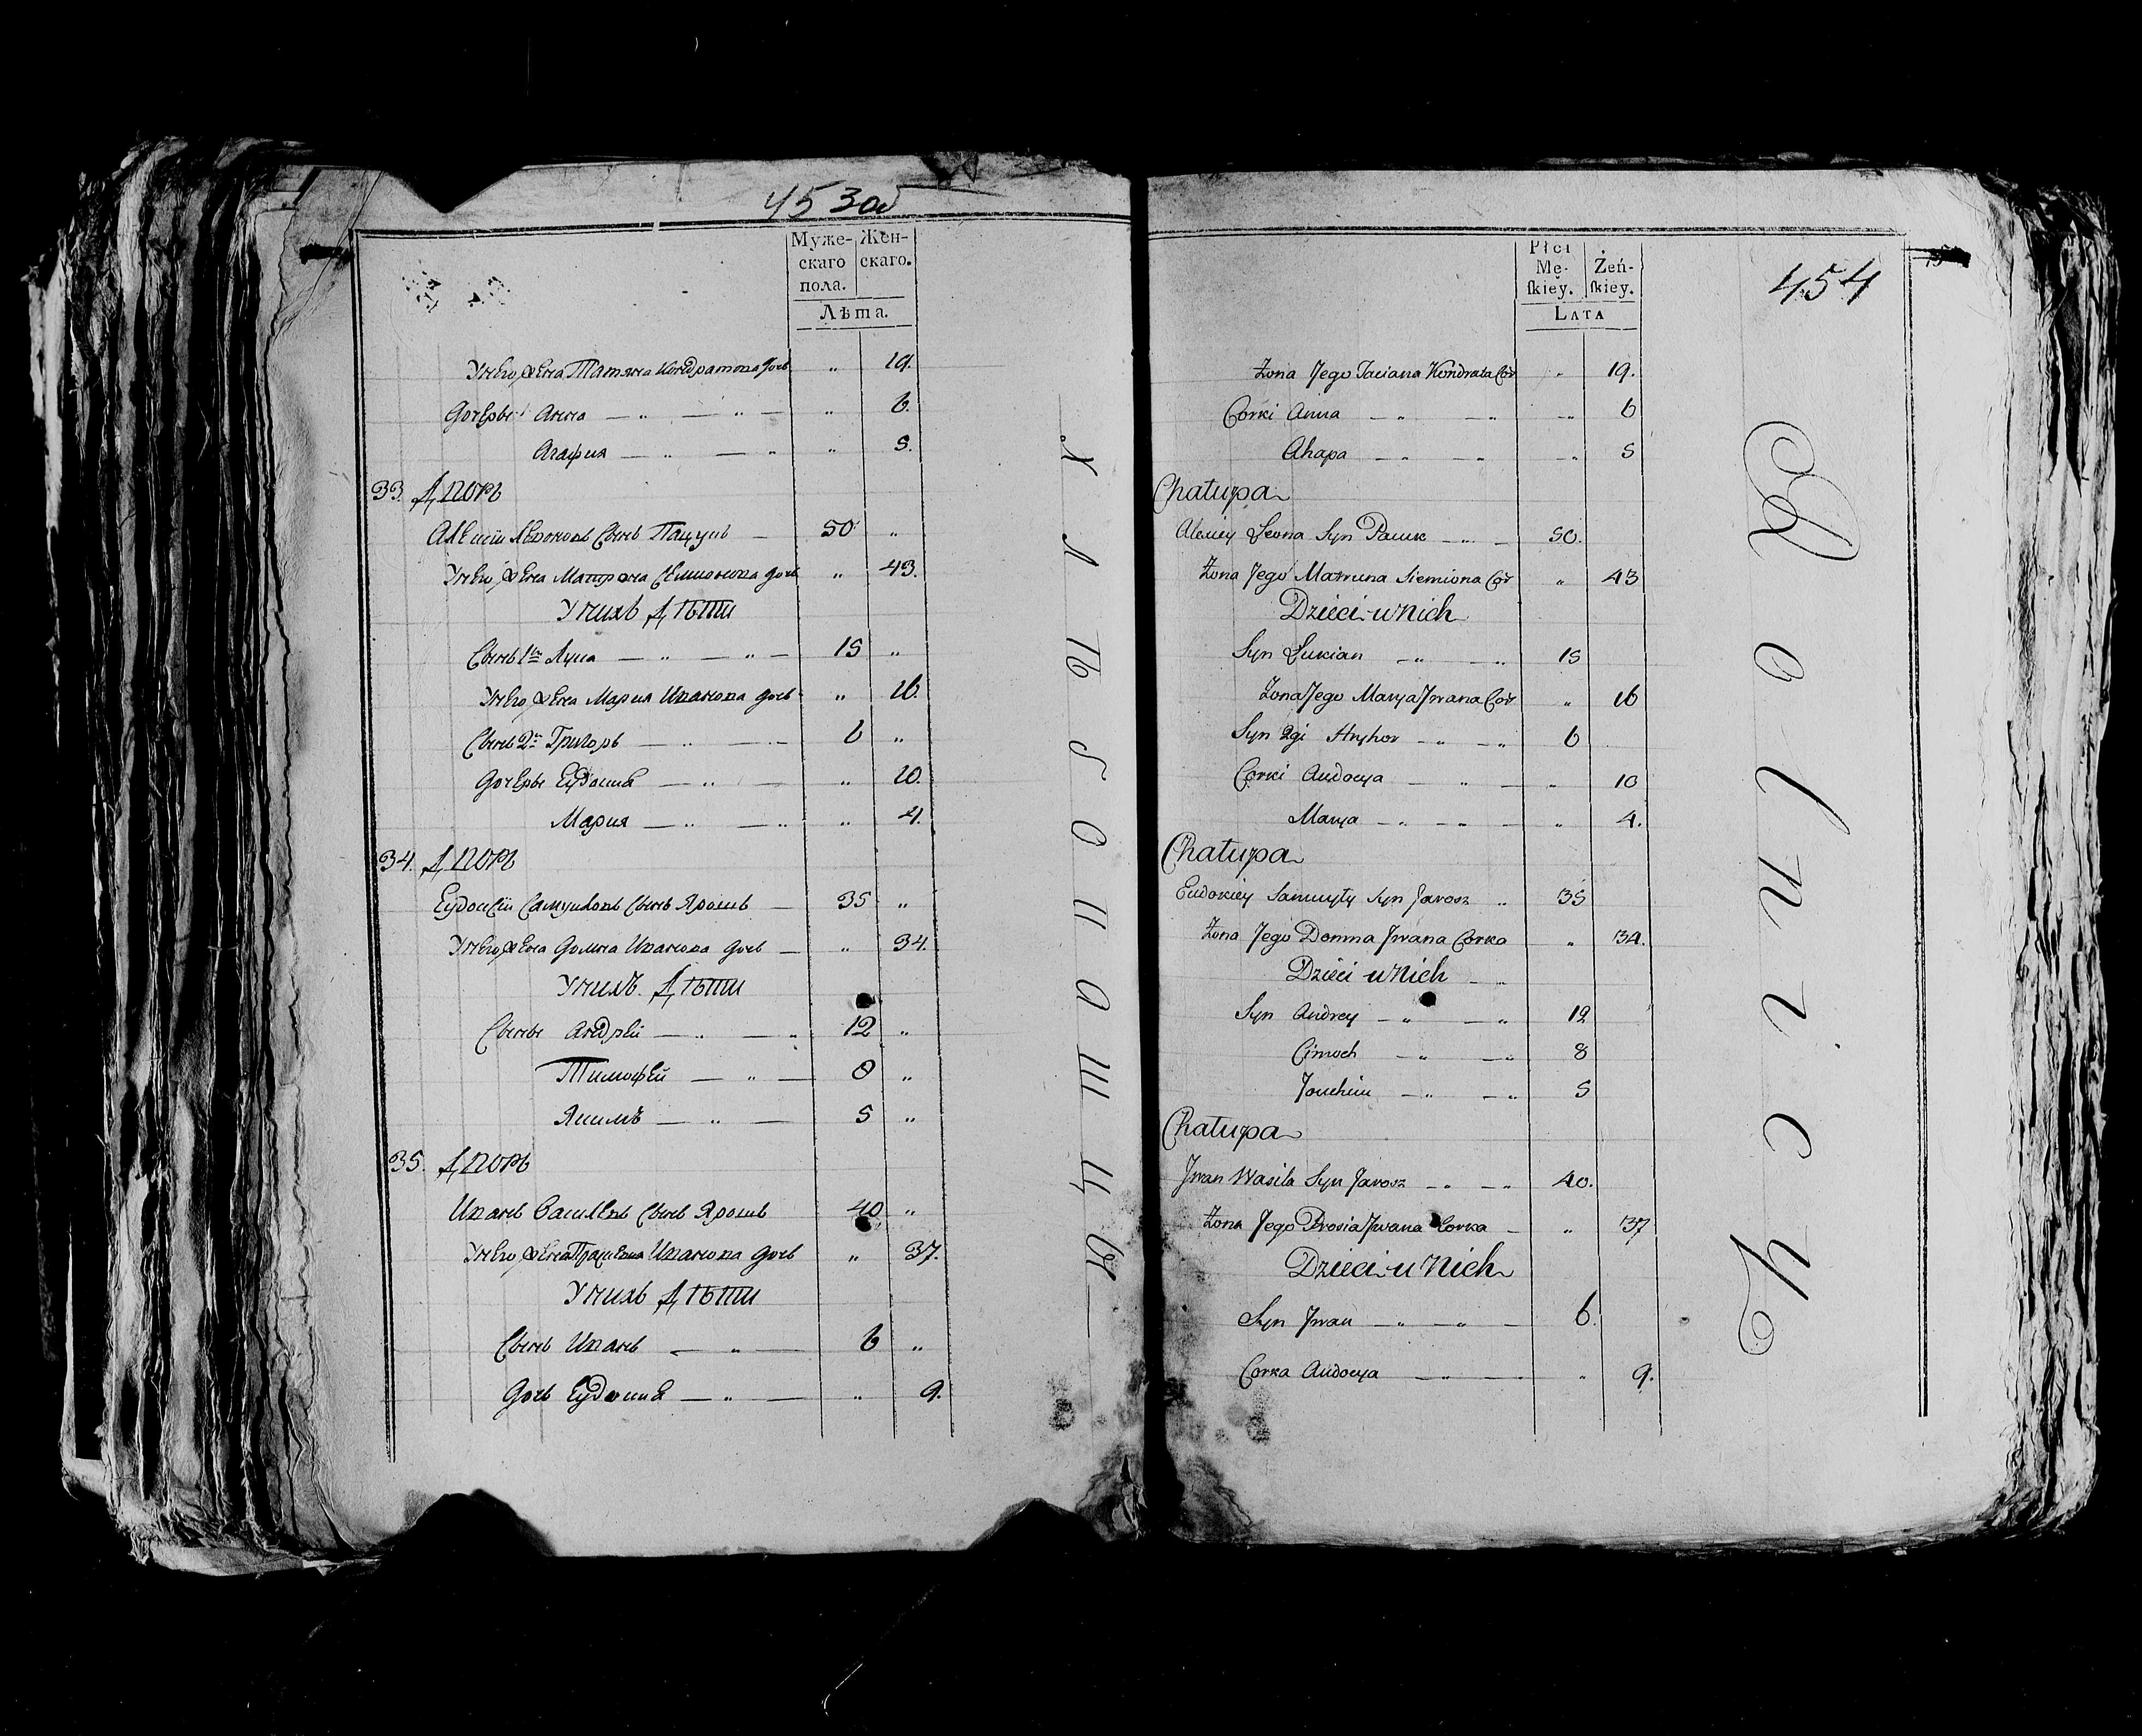 453 об
Муже-
скаго
пола.
Жен-
скаго.
Лѣта.
У него жена Татяна Кондратова дочь " 19.
Дочери Анна — " — " — " 6.
Агафия — " — " " 5.
33. Дворъ
Алексій Леоновъ сынъ Пацукъ — 50 "
У него жена Матрона Семионова дочь " 43.
У нихъ Дѣти
Сынъ 1й Лука — " — " — 15 "
У него жена Мария Иванова дочь " 16.
Сынъ 2й Григоръ — " — " 6 "
Дочери Еудокия — " — " 10.
Мария — " — " " 4.
34. Дворъ
Еудокій Самуиловъ сынъ Ярошъ — 35 "
У него жена Домна Иванова дочь — " 34.
У нихъ Дѣти
Сыны Андрей — " — " 12 "
Тимофей — " — 8 "
Якимъ — " — 5 "
35. Дворъ
Иванъ Василевъ сынъ Ярошъ 40 "
У него жена Иванова дочь " 37.
У нихъ Дѣти
Сынъ Иванъ — " — 6 "
Дочь Еудокия — " — " 9.
Płci
Mę-
ſkiey.
Żeń-
ſkiey.
LATA
454
Żona Jego Taciana Kondrata Cór " 19.
Corki Anna — " — " — " 6
Ahapa — " — " — " 5
Chałupa
Alexiey Leona Syn Pacuk — " — 50.
Żona Jego Matruna Siemiona Cór " 43
Dzieci u Nich
Syn Łukian — " — " 15
Żona Jego Marya Jwana Cór " 16
Syn 2gi Hryhor — " — " 6
Corki Audocya — " — " 10
Marya — " — " — " 4.
Chałupa
Eudokiey Samuyły Syn Jarosz " 35
Żona Jego Domna Jwana Corka " 34.
Dzieci u Nich
Syn Andrey — " — " 12
Cimoch — " — " 8
Jouchim — " — " 5
Chałupa
Jwan Wasila Syn Jarosz — " — " 40.
Żona Jego Prosia Jwana Corka — " 37
Dzieci u Nich
Syn Jwan — " — " — 6.
Corka Audocya — " — " 9.
R o l n i c y